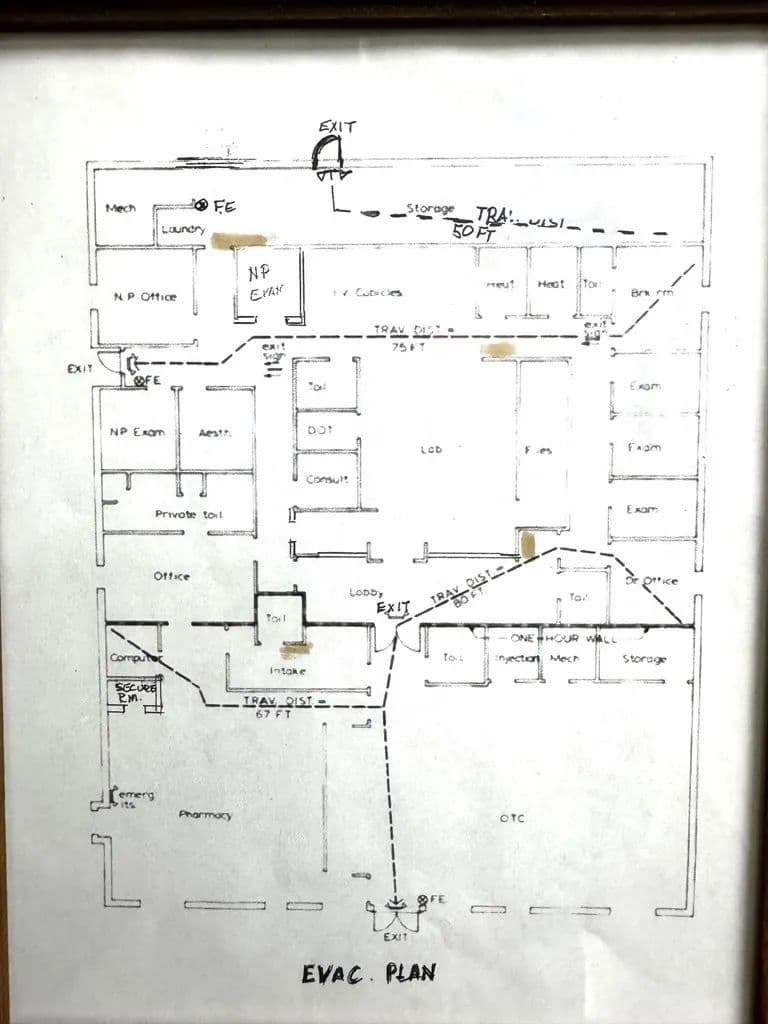 EXIT
Mech
F.E
Storage
TRAV DIST
50 FT
Laundry
N.P Office
NP
EVAN
I.V. Cubicles
Heat
Toil
Brk rm
TRAV. DIST =
75 FT
exit
sign
exit
sign
EXIT
FE
Toil
Exam
NP Exam
Aesth
DOT
Lab
Files
Exam
Consult
Private toil
Exam
Office
Lobby
EXIT
TRAV DIST =
80 FT
Toil
Dr Office
Toil
ONE-HOUR WALL
Computer
Intake
Toil
Injection
Mech
Storage
SECURE
RM.
TRAV. DIST =
67 FT
emerg
lts.
Pharmacy
OTC
FE
EXIT
EVAC. PLAN